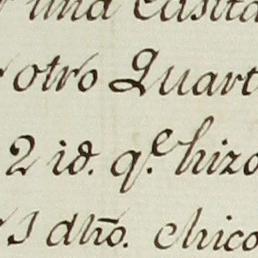 una casita
otro Quart
2 id. q.e hizo
dho. chico